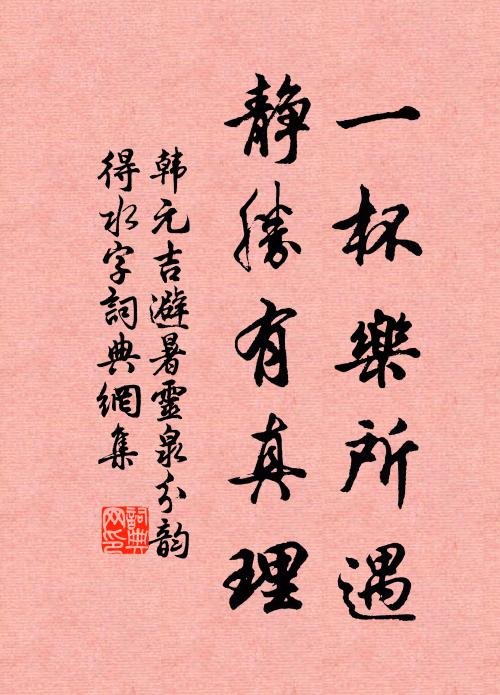 一杯樂所遇
靜勝有真理
韩元吉避暑靈泉分韵
得水字詞典網集
詞典
网印